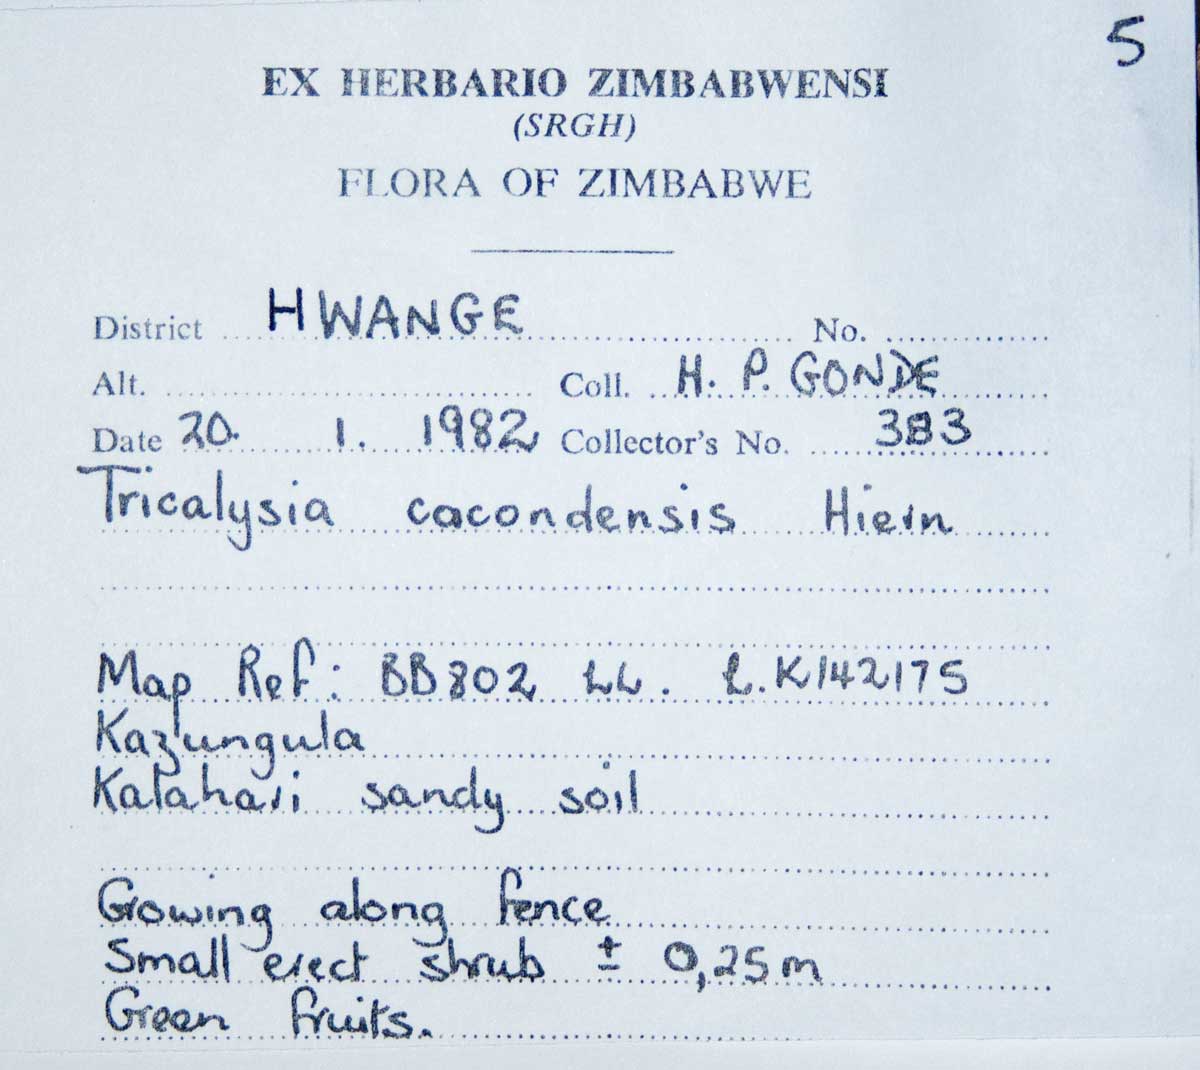 5
EX HERBARIO ZIMBABWENSI
(SRGH)
FLORA OF ZIMBABWE
District HWANGE No.
Alt. Coll. H. P. GONDE
Date 20. 1. 1982 Collector's No. 383
Tricalysia cacondensis Hiern
Map Ref: BB802 LL. L.K142175
Kazungula
Kalahari sandy soil
Growing along fence
Small erect shrub ± 0,25m
Green fruits.